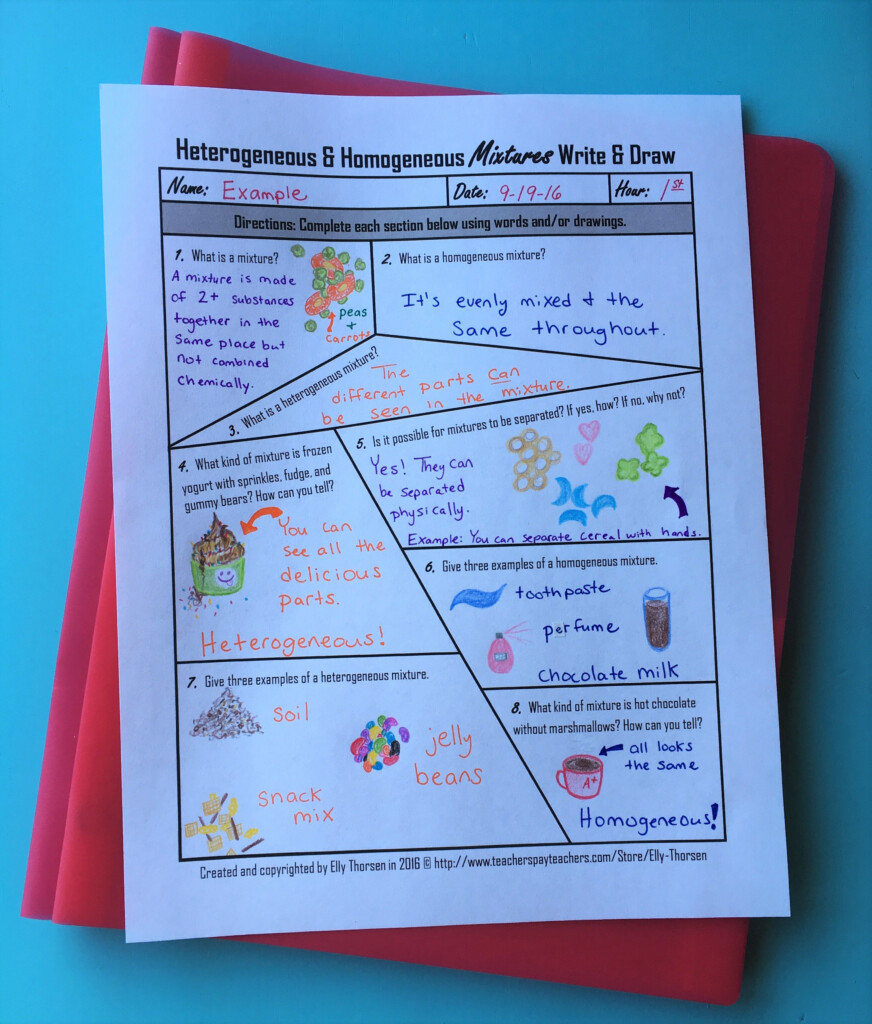 Heterogeneous & Homogeneous Mixtures Write & Draw
Name: Example
Date: 9-19-16
Hour: 1st
Directions: Complete each section below using words and/or drawings.
1. What is a mixture?
A mixture is made
of 2+ substances
together in the
same place but
not combined
chemically.
peas
+
carrots
2. What is a homogeneous mixture?
It's evenly mixed + the
same throughout.
3. What is a heterogeneous mixture?
The
different parts can
be seen in the mixture.
4. What kind of mixture is frozen
yogurt with sprinkles, fudge, and
gummy bears? How can you tell?
You can
see all the
delicious
parts.
Heterogeneous!
5. Is it possible for mixtures to be separated? If yes, how? If no, why not?
Yes! They can
be separated
physically.
Example: You can separate cereal with hands.
6. Give three examples of a homogeneous mixture.
toothpaste
perfume
chocolate milk
7. Give three examples of a heterogeneous mixture.
soil
jelly
beans
snack
mix
8. What kind of mixture is hot chocolate
without marshmallows? How can you tell?
all looks
the same
A+
Homogeneous!
Created and copyrighted by Elly Thorsen in 2016 © http://www.teacherspayteachers.com/Store/Elly-Thorsen